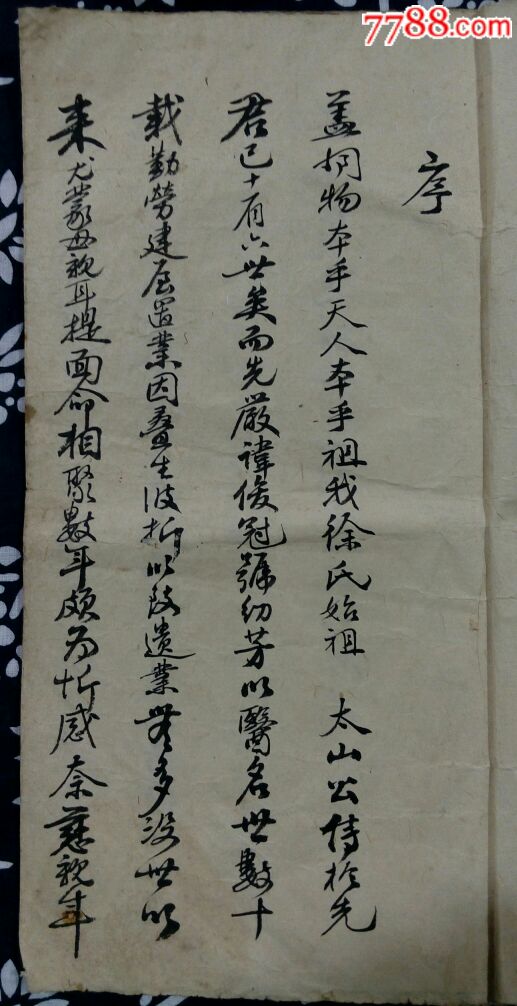 7788.com
序
盖闻物本乎天人本乎祖我徐氏始祖 太山公传於先
君已十有六世矣而先嚴諱俊冠號幼芳以醫名世數十
載勤勞建屋置業因叠生波折以致遗業無多没世以
来尤蒙母親耳提面命相聚數年頗為忻感奈慈親年